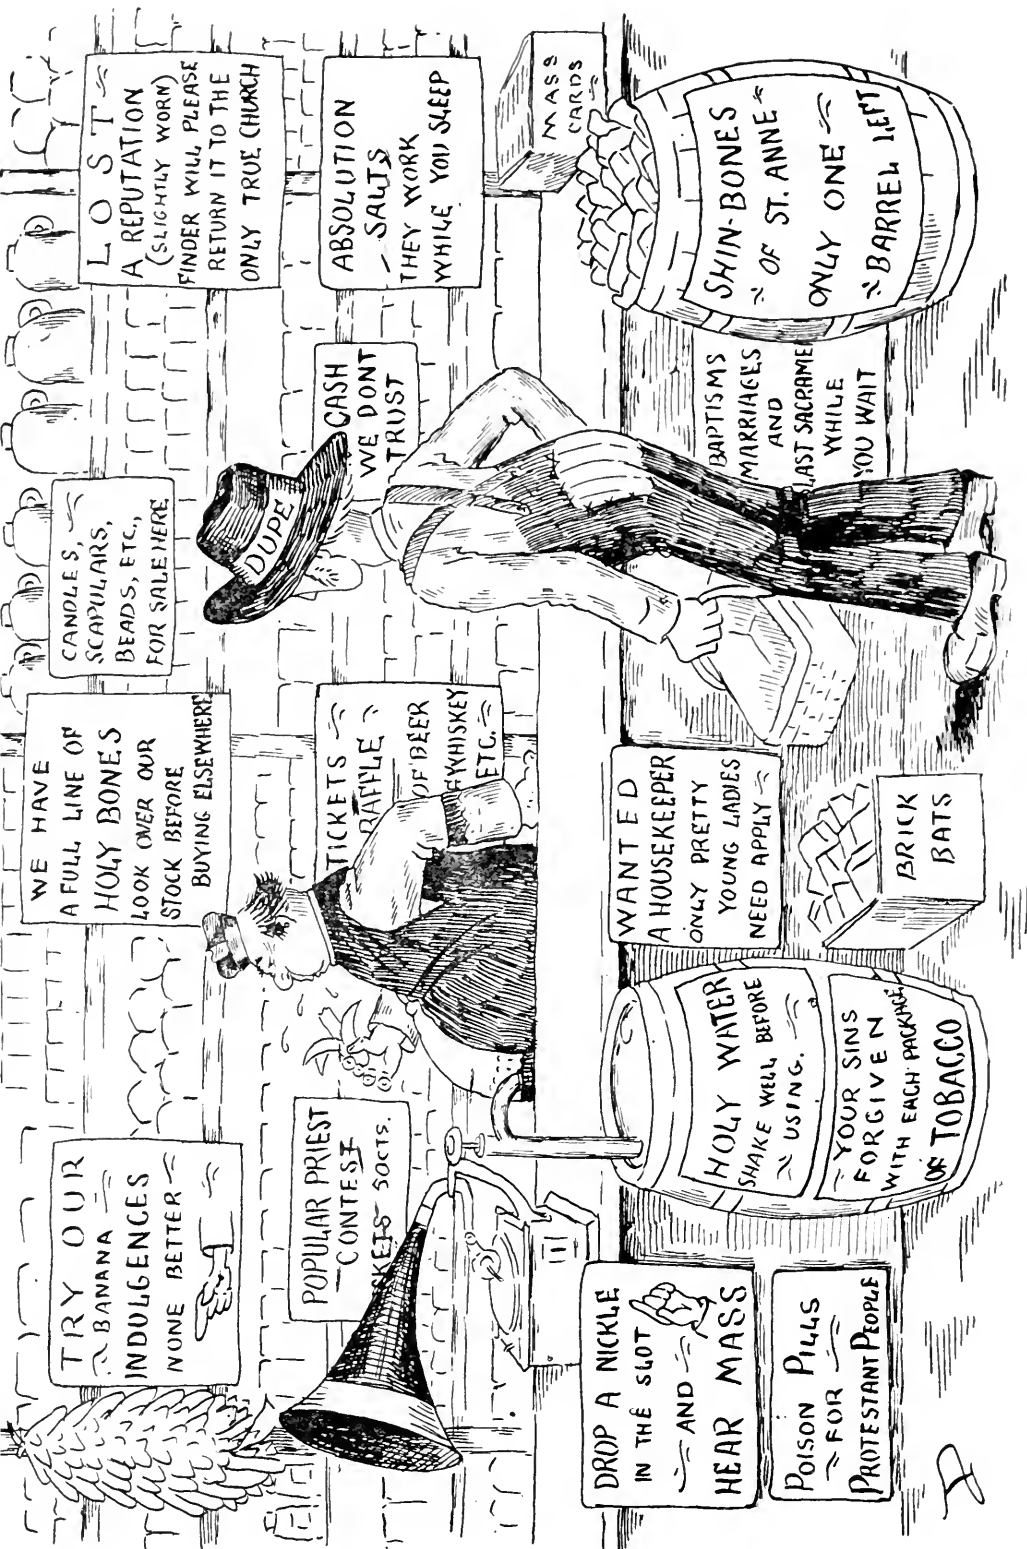 TRY OUR
BANANA
INDULGENCES
NONE BETTER
WE HAVE
A FULL LINE OF
HOLY BONES
LOOK OVER OUR
STOCK BEFORE
BUYING ELSEWHERE
CANDLES,
SCAPULARS,
BEADS, ETC.,
FOR SALE HERE
LOST
A REPUTATION
(SLIGHTLY WORN)
FINDER WILL PLEASE
RETURN IT TO THE
ONLY TRUE CHURCH
POPULAR PRIEST
CONTEST
CKETS 50CTS.
TICKETS
RAFFLE
OF BEER
WHISKEY
ETC.
DUPE
CASH
WE DONT
TRUST
ABSOLUTION
SALTS
THEY WORK
WHILE YOU SLEEP
MASS
CARDS
DROP A NICKLE
IN THE SLOT
AND
HEAR MASS
POISON PILLS
FOR
PROTESTANT PEOPLE
HOLY WATER
SHAKE WELL BEFORE
USING.
YOUR SINS
FORGIVEN
WITH EACH PACKAGE
OF TOBACCO
WANTED
A HOUSEKEEPER
ONLY PRETTY
YOUNG LADIES
NEED APPLY
BRICK
BATS
BAPTISMS
MARRIAGES
AND
LAST SACRAME
WHILE
YOU WAIT
SHIN-BONES
OF ST. ANNE
ONLY ONE
BARREL LEFT